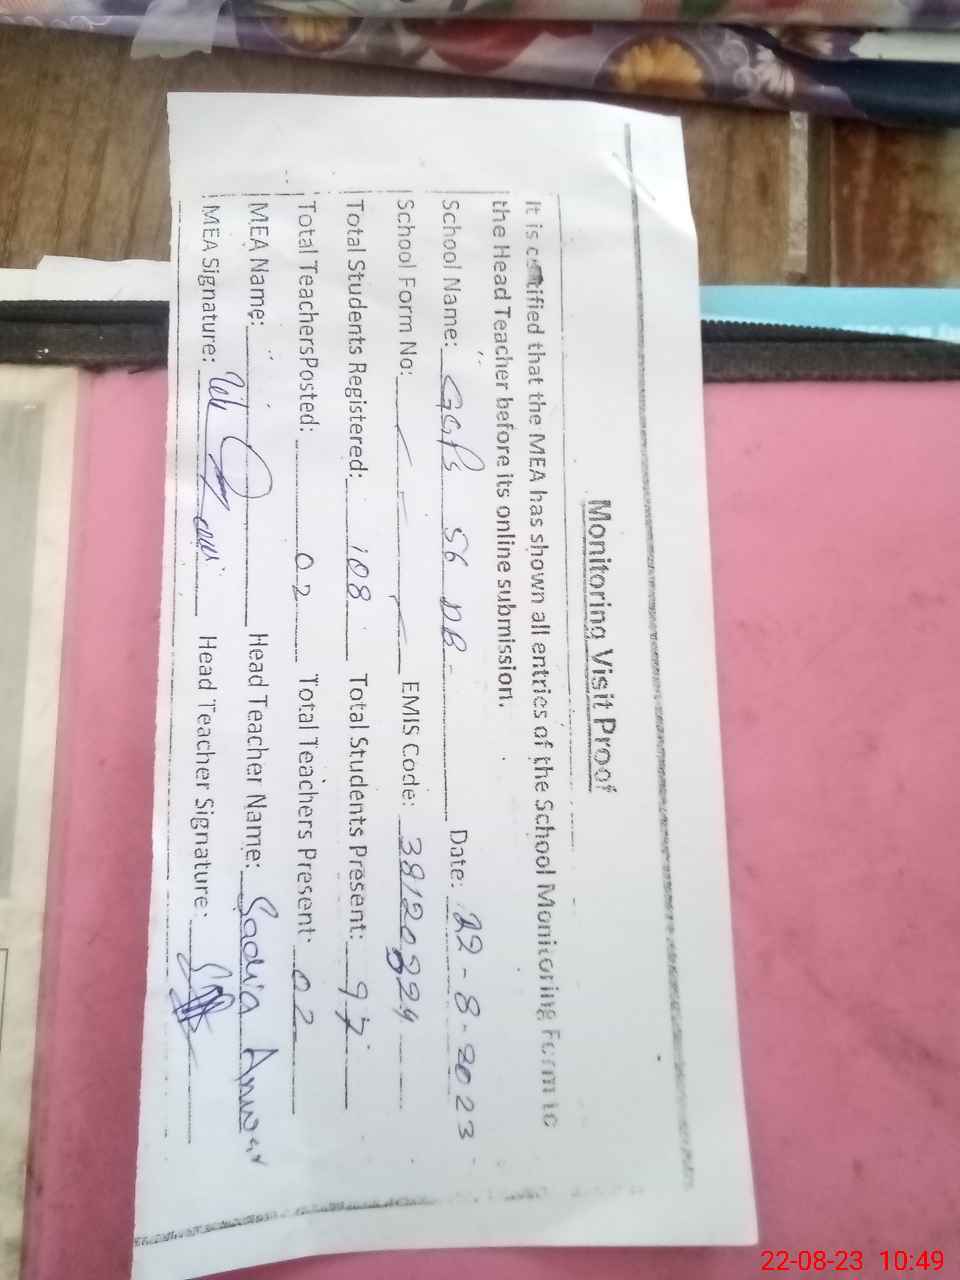 Monitoring Visit Proof
It is certified that the MEA has shown all entries of the School Monitoring Form to
the Head Teacher before its online submission.
School Name: GGPS 56 DB Date: 22-8-2023
School Form No: EMIS Code: 38120324
Total Students Registered: 108 Total Students Present: 97
Total TeachersPosted: 02 Total Teachers Present: 02
MEA Name: Head Teacher Name: Sadia Anwar
MEA Signature: Head Teacher Signature:
22-08-23 10:49